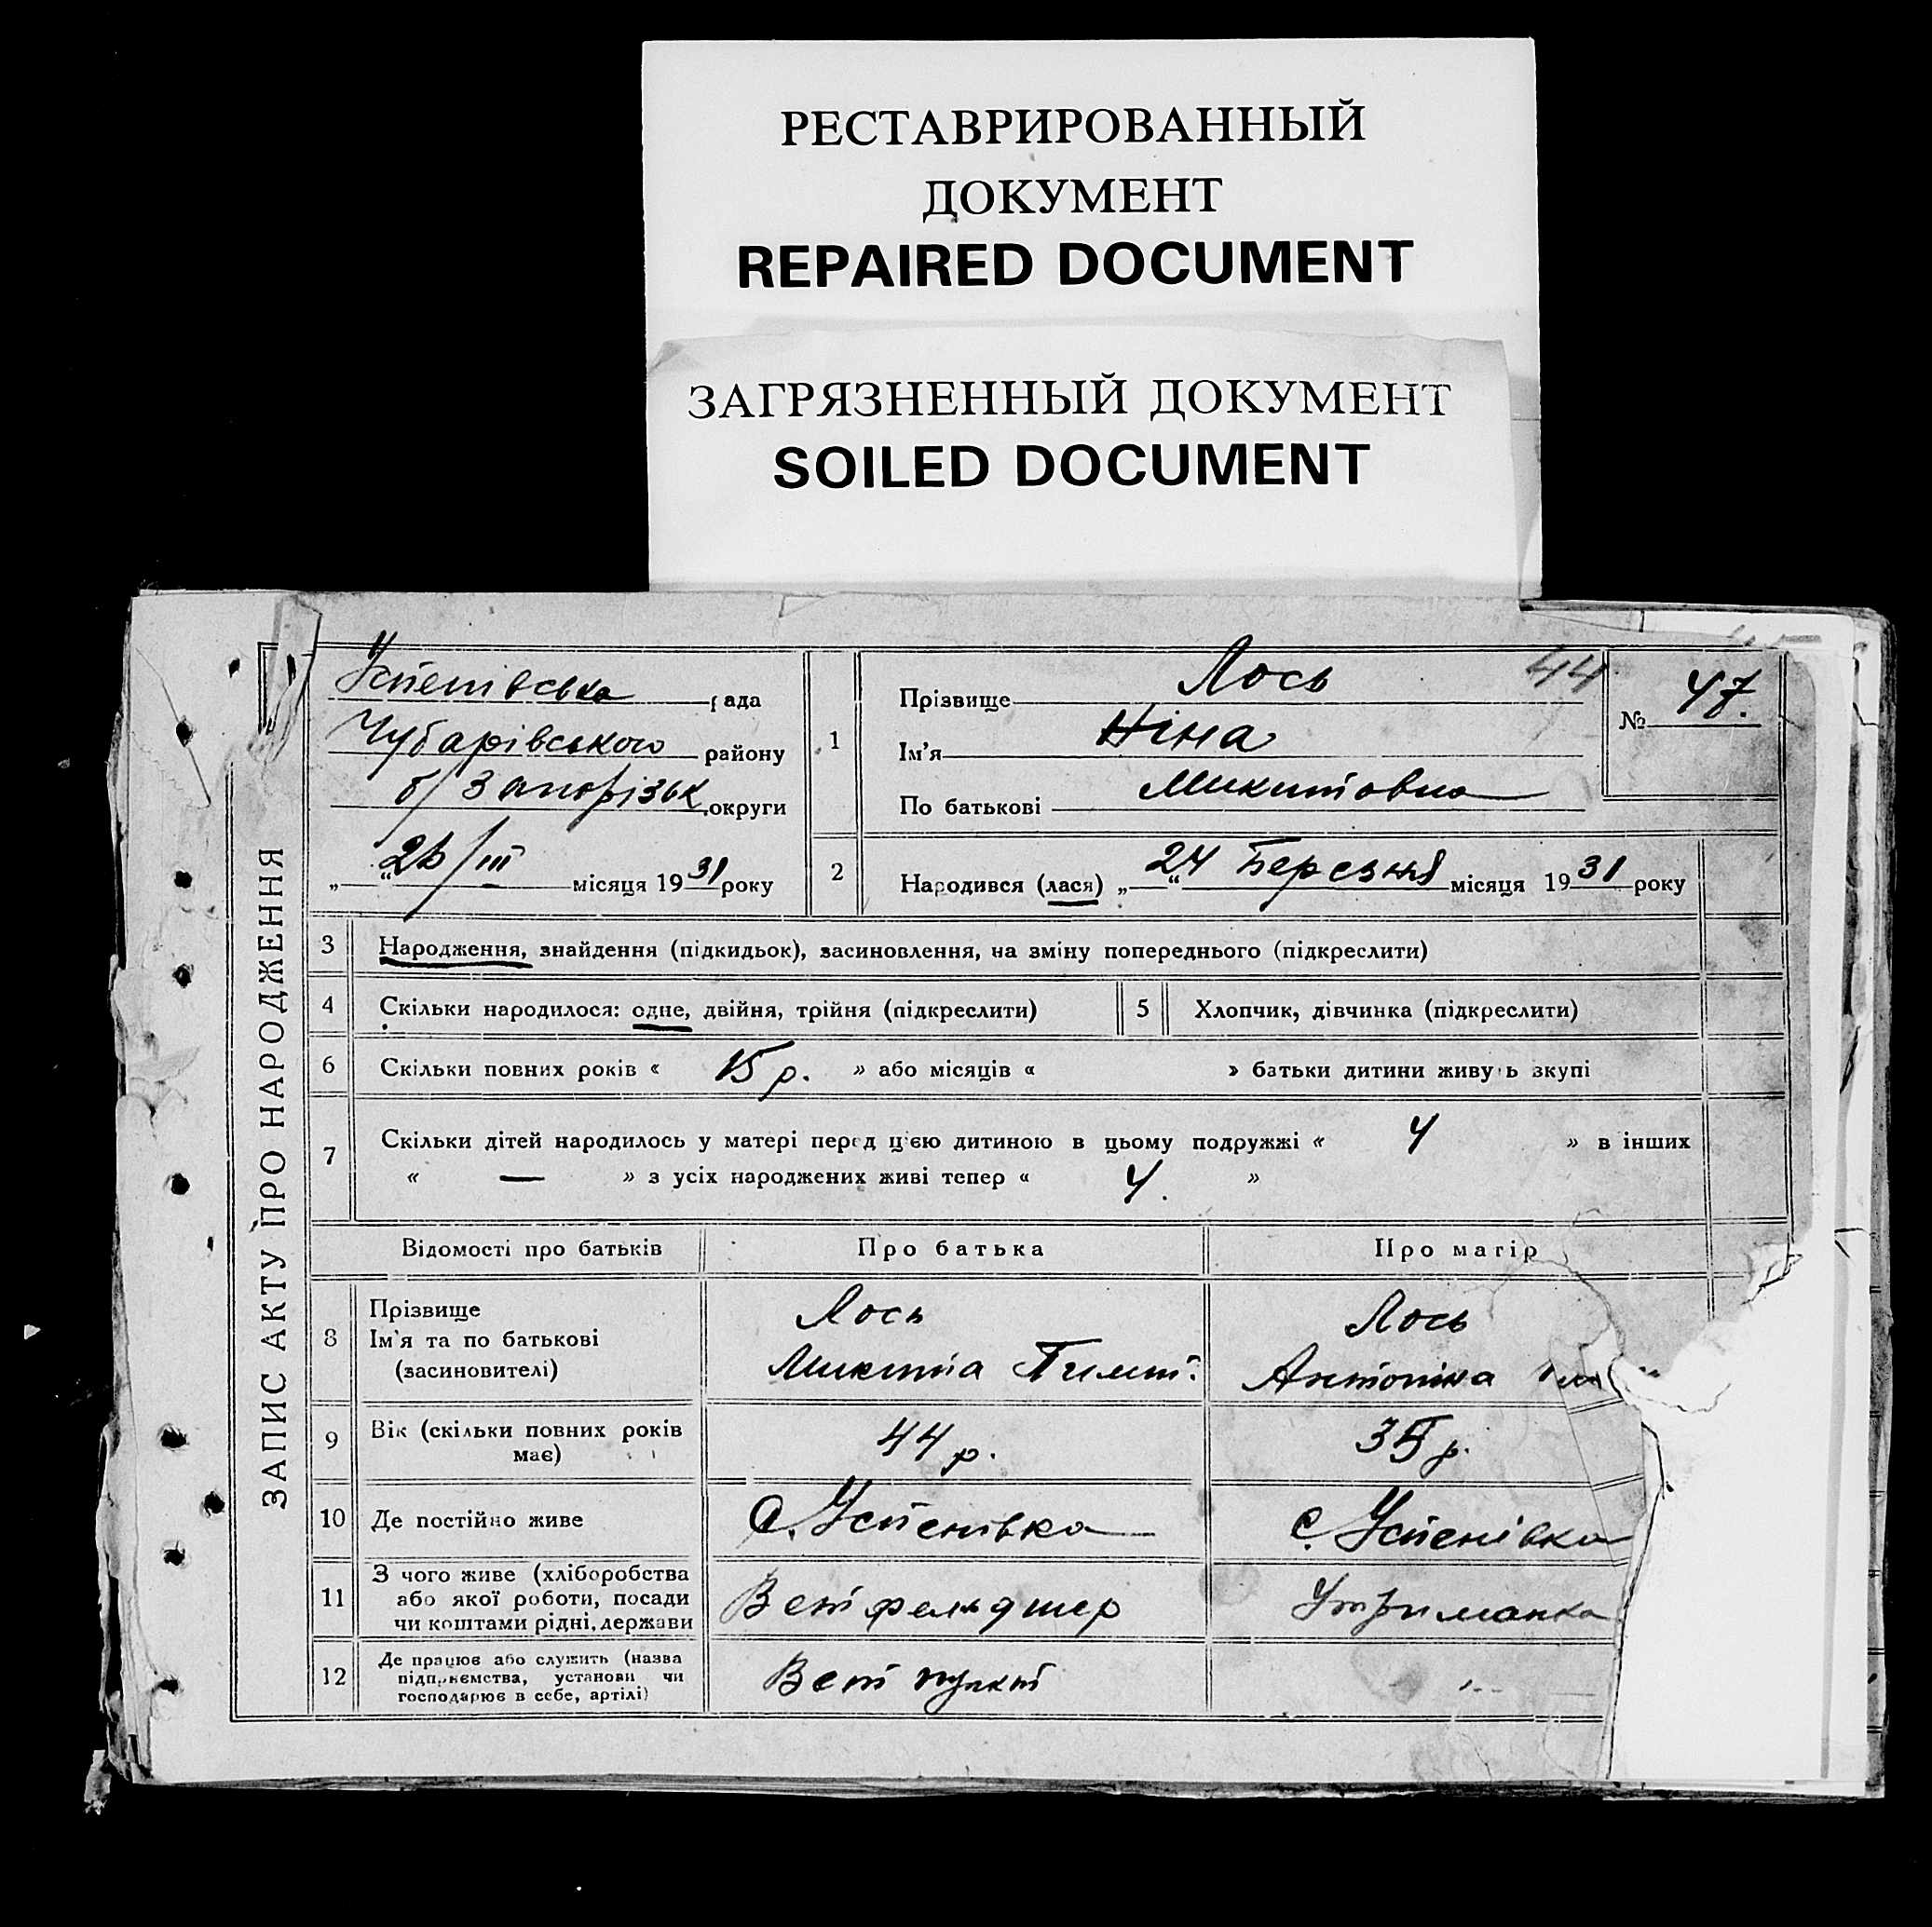 РЕСТАВРИРОВАННЫЙ
ДОКУМЕНТ
REPAIRED DOCUMENT
ЗАГРЯЗНЕННЫЙ ДОКУМЕНТ
SOILED DOCUMENT
ЗАПИС АКТУ ПРО НАРОДЖЕННЯ
Успенівська рада
Чубарівського району
б/Запорізьк. округи
„ “ /III місяця 1931 року
1
Прізвище Лось
44
Ім'я Ніна
По батькові Микитовна
№ 47.
2
Народився (лася) „ “ 24 Березня місяця 1931 року
3 Народження, знайдення (підкидьок), засиновлення, на зміну попереднього (підкреслити)
4 Скільки народилося: одне, двійня, трійня (підкреслити)
5 Хлопчик, дівчинка (підкреслити)
6 Скільки повних років « 15 р. » або місяців « » батьки дитини живуть вкупі
7 Скільки дітей народилось у матері перед цією дитиною в цьому подружжі « 4 » в інших
« — » з усіх народжених живі тепер « 4. »
Відомості про батьків Про батька Про матір
8 Прізвище
Ім'я та по батькові
(засиновителі)
Лось
Микита Тимот.
Лось
Антоніна
9 Вік (скільки повних років
має)
44 р.
35 р.
10 Де постійно живе с. Успенівка с. Успенівка
11 З чого живе (хліборобства
або якої роботи, посади
чи коштами рідні, держави
Ветфельдшер
Утриманка
12 Де працює або служить (назва
підприємства, установи чи
господарює в себе, артілі)
Вет пункт